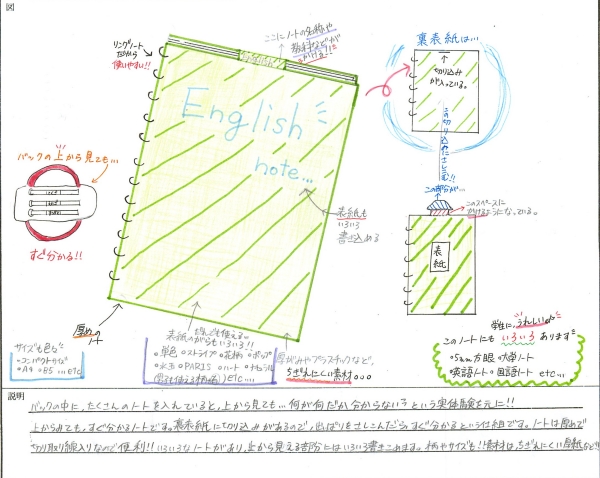 図
リングノート
だから
使いやすい!!
ここにノートの名称や
教科などが
かける…!!
English
note...
裏表紙は…
切り込みが
入っている。
この切り込みにさしこむ!!
この部分が…
このスペースに
かけるようになっている。
表紙
バックの上から見ても…
すぐ分かる!!
表紙も
いろいろ
書き込める
厚めの
ノート
サイズも色々
・コンパクトサイズ
・A4 ・B5 …etc
表紙のがらもいろいろ!!
だれでも使える
・単色 ・ストライプ ・花柄 ・ポップ
・水玉 ・PARIS ・ハート ・ナチュラル
etc…
厚紙やプラスチックなど、
ちぎれにくい素材。。。
学生に、うれしい
このノートにも いろいろ あります
・5mm方眼 ・大学ノート
・英語ノート ・国語ノート etc…
説明
バックの中に、たくさんのノートを入れていると、上から見ても…何が何だか分からない?という実体験を元に!!
上からみても、すぐ分かるノートです。裏表紙に切り込みがあるので、出っぱりをさしこんだら、すぐ分かるという仕組です。ノートは厚めで
切り取り線入りなので便利!!いろいろなノートがあり、上から見える部分にはいろいろ書きこめます。柄やサイズも!!素材は、ちぎれにくい厚紙など!!